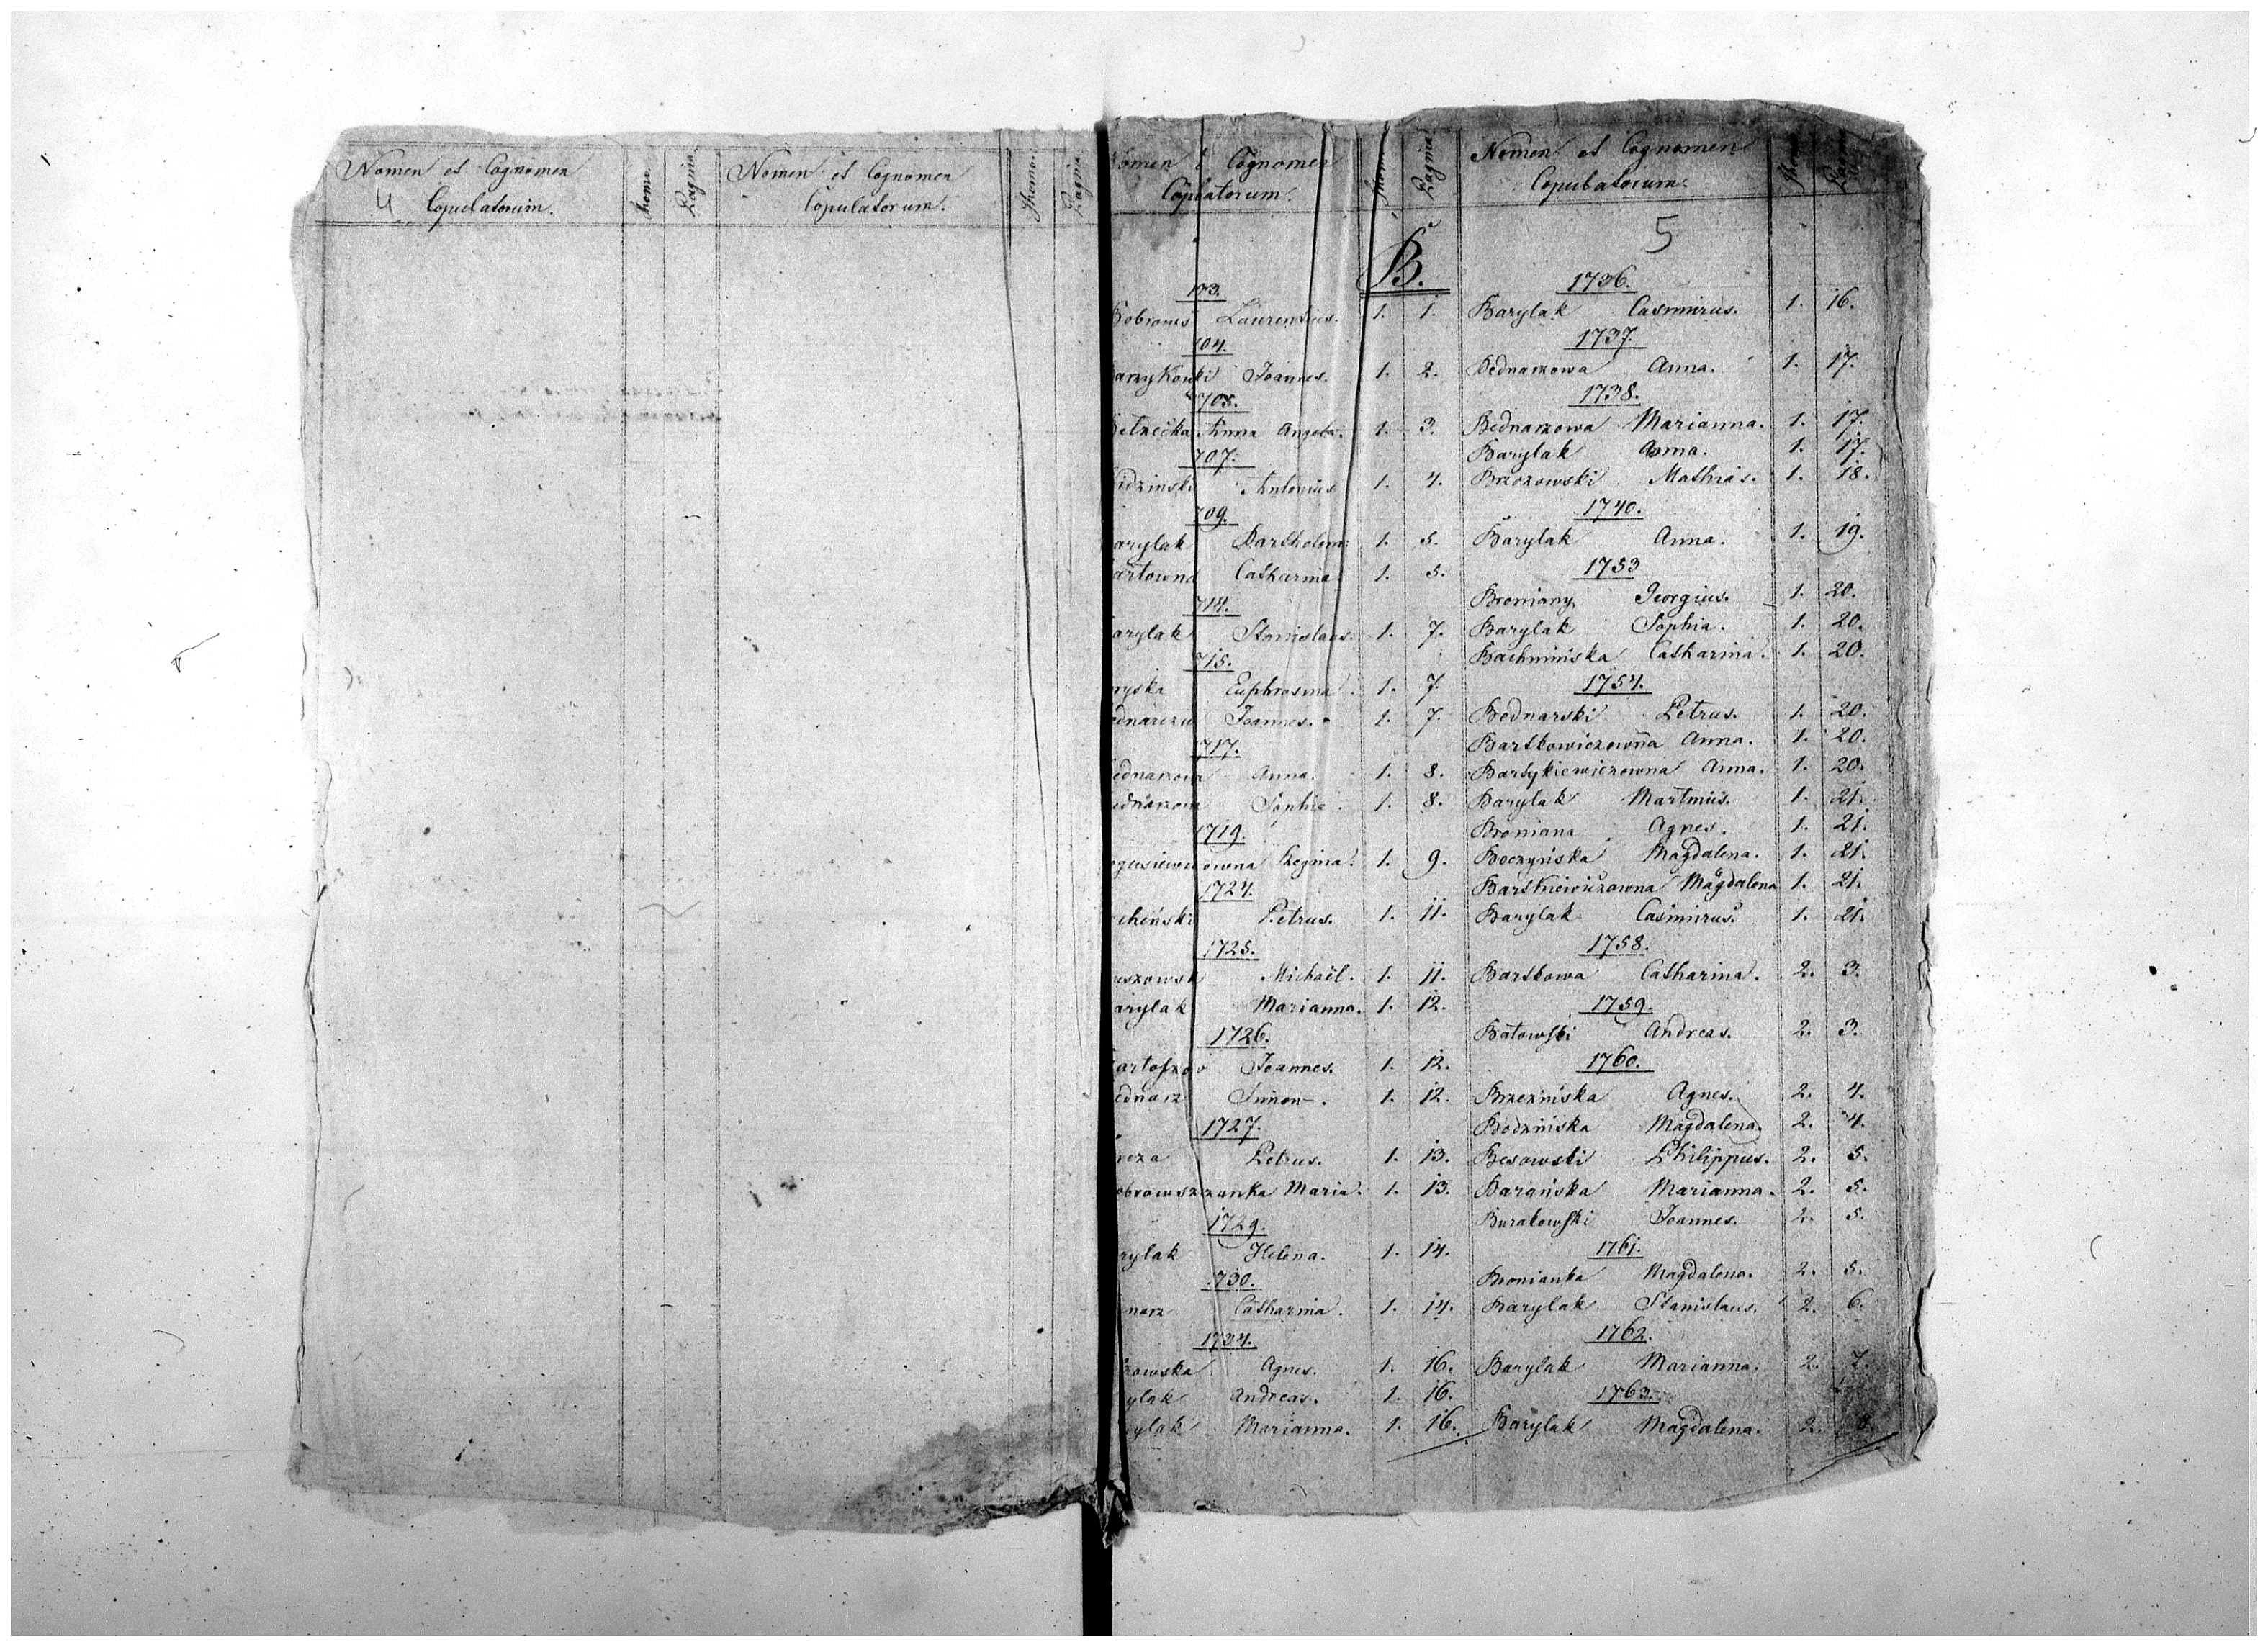 Nomen et Cognomen
4 Copulatorum.
Thomo.
Pagina
Nomen et Cognomen
Copulatorum.
Thomo.
Pagina
Nomen Cognomen
Copulatorum.
Pagina
B.
Laurentius. 1. 1.
704.
Joannes. 1. 2.
Anna Angela. 1. 3.
707.
idzinski Antonius 1. 4.
709.
arylak Bartholom: 1. 5.
artowna Catharina 1. 5.
714.
arylak Stanislaus. 1. 7.
715.
ryska Euphrosina. 1. 7.
Joannes. 1. 7.
717.
ednarzowa Anna. 1. 8.
ednarzowa Sophia. 1. 8.
1719.
ówna Regina. 1. 9.
1724.
cheński Petrus. 1. 11.
1725.
uszowsk Michaël. 1. 11.
arylak Marianna. 1. 12.
1726.
Joannes. 1. 12.
ednarz Simon. 1. 12.
1727.
reza Petrus. 1. 13.
obrowszczanka Maria. 1. 13.
1729.
rylak Helena. 1. 14.
1730.
narz Catharina. 1. 14.
1734.
zowska Agnes. 1. 16.
ylak Andreas. 1. 16.
rylak Marianna. 1. 16.
Nomen et Cognomen
Copulatorum.
5
1736.
Barylak Casimirus. 1. 16.
1737.
Bednarzowa Anna. 1. 17.
1738.
Bednarzowa Marianna. 1. 17.
Barylak Anna. 1. 17.
Brzozowski Mathias. 1. 18.
1740.
Barylak Anna. 1. 19.
1753
Broniany Georgius. 1. 20.
Barylak Sophia. 1. 20.
Bachmińska Catharina. 1. 20.
1754.
Bednarski Petrus. 1. 20.
Bartkowiczowna Anna. 1. 20.
Bartykiewiczowna Anna. 1. 20.
Barylak Martinus. 1. 21.
Broniana Agnes. 1. 21.
Boczyńska Magdalena. 1. 21.
Bartkiewiczowna Magdalena 1. 21.
Barylak Casimirus. 1. 21.
1758.
Bartkowa Catharina. 2. 3.
1759.
Batowski Andreas. 2. 3.
1760.
Brzezińska Agnes. 2. 4.
Bodzińska Magdalena. 2. 4.
Besowski Philippus. 2. 5.
Barańska Marianna. 2. 5.
Burakowski Joannes. 2. 5.
1761.
Bronianka Magdalena. 2. 5.
Barylak Stanislaus. 2. 6.
1762.
Barylak Marianna. 2. 7.
1763.
Barylak Magdalena. 2.